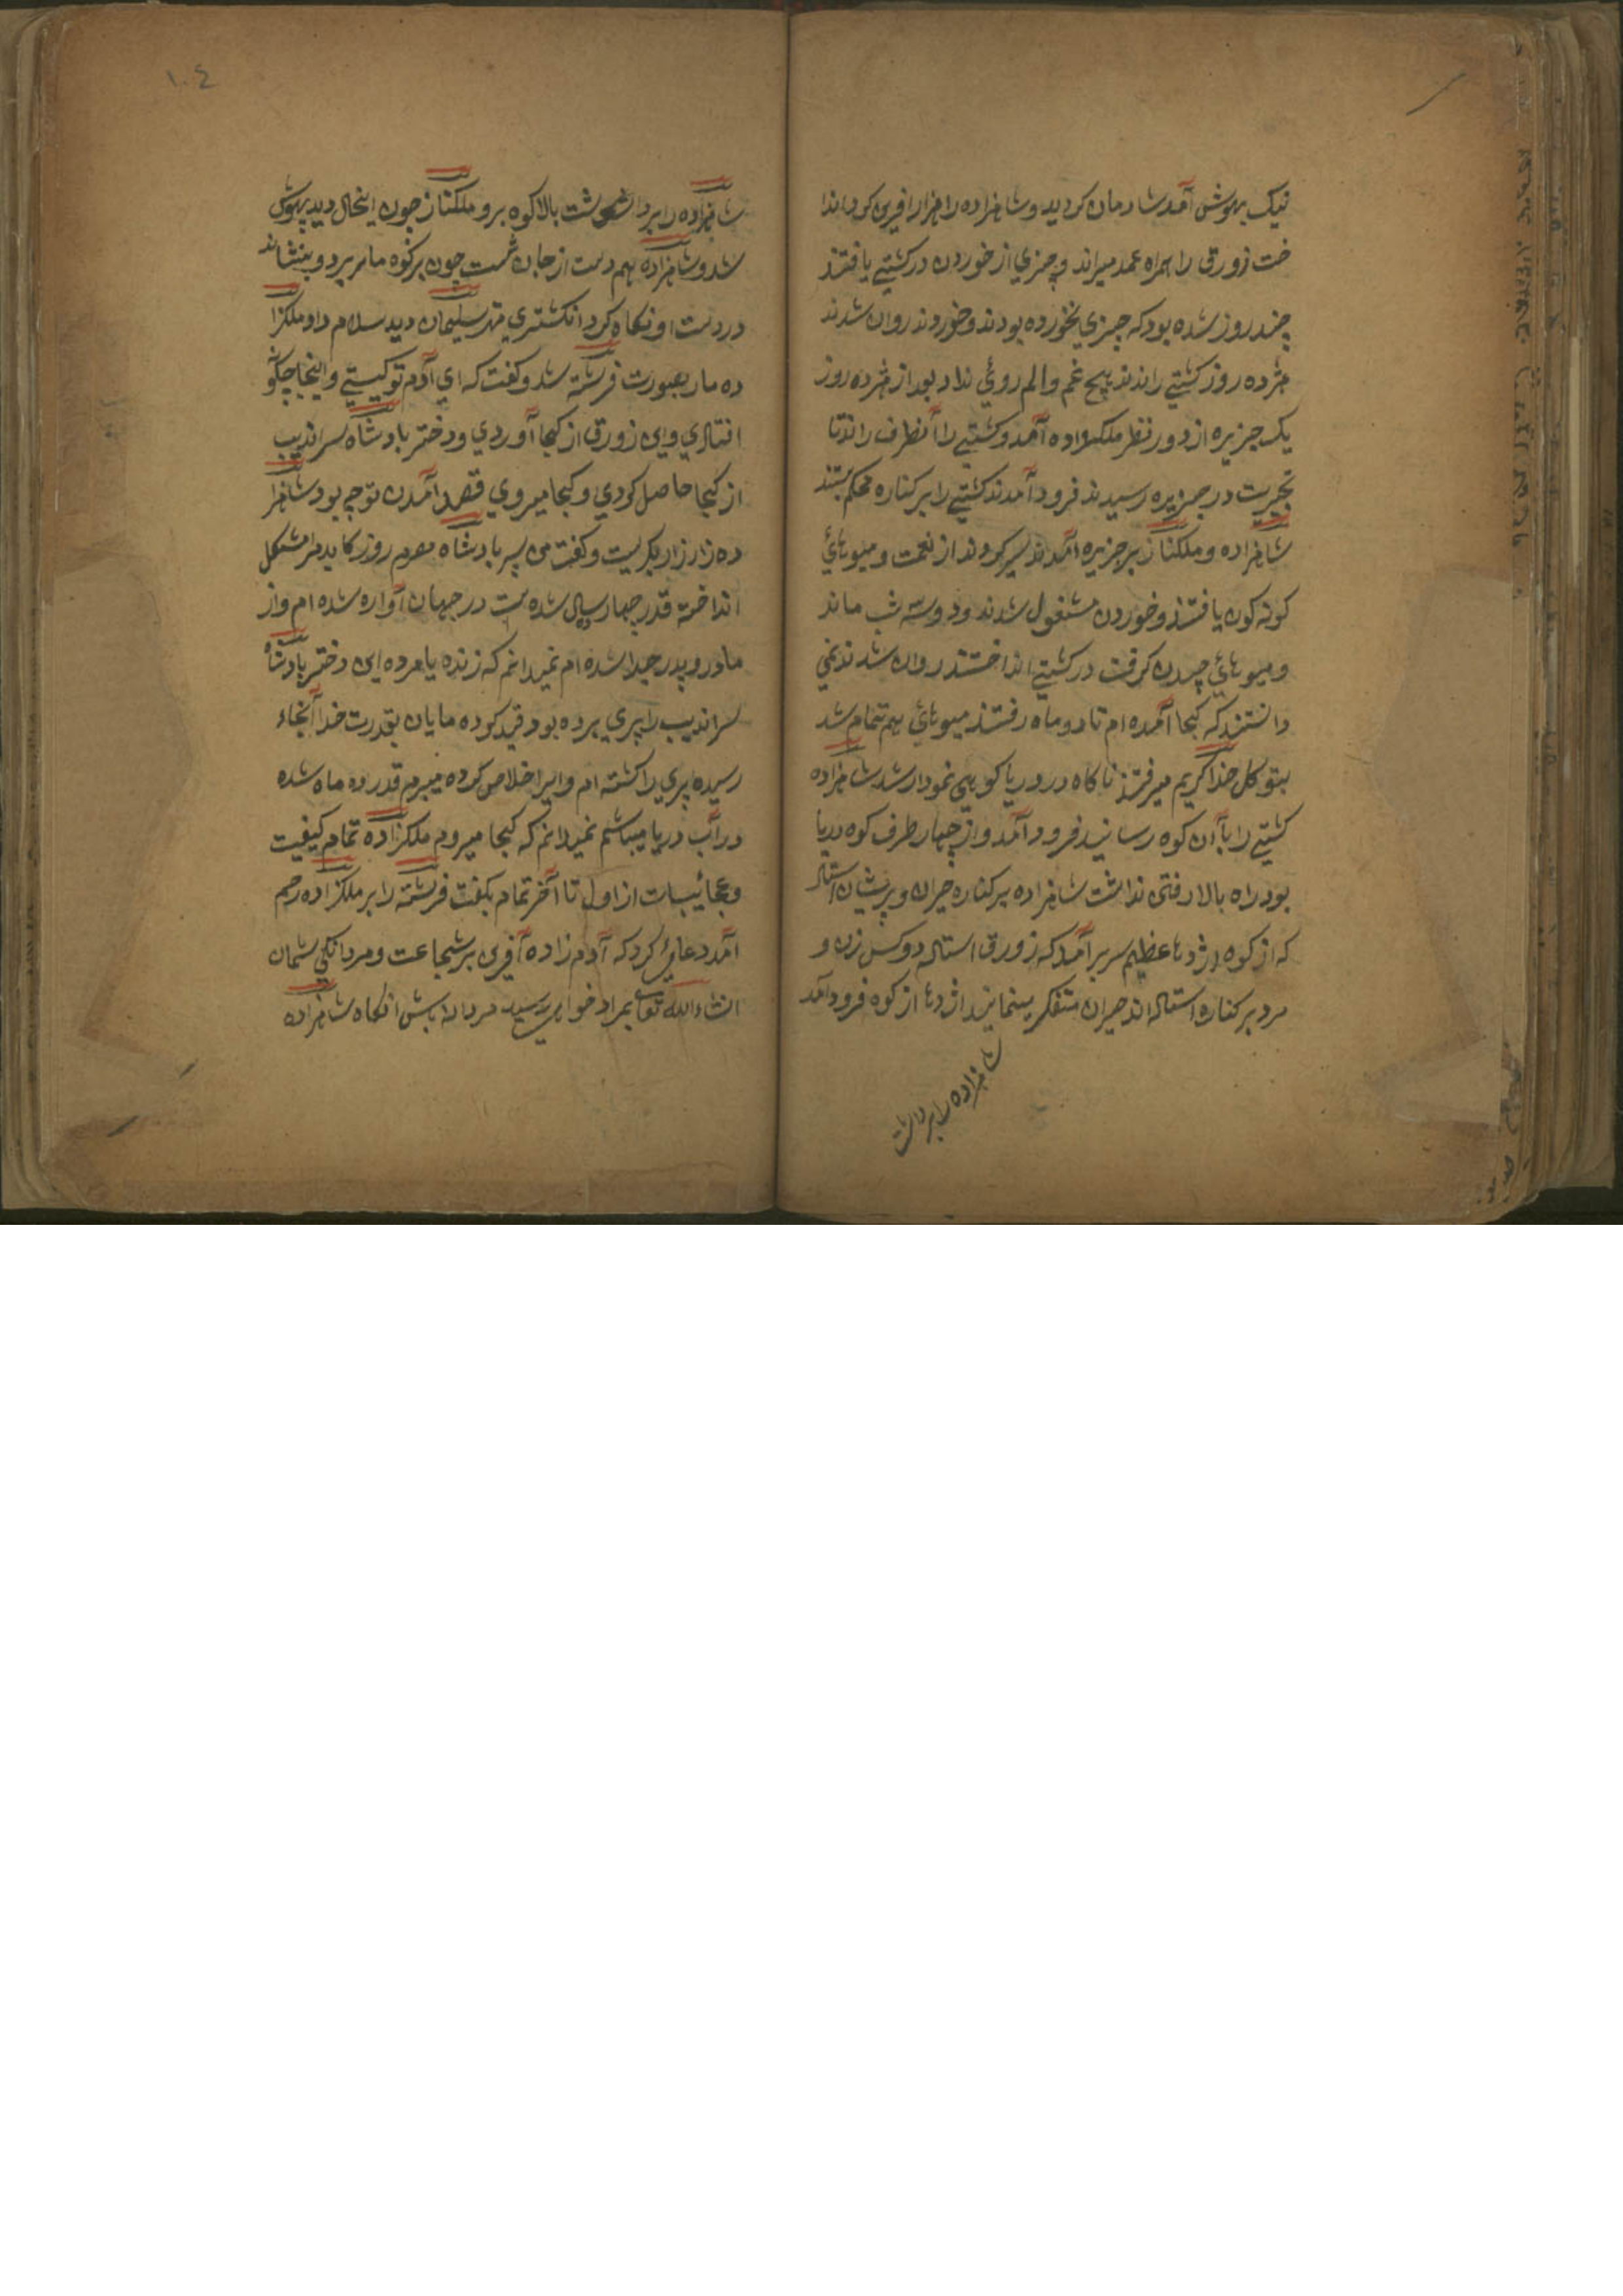 نیک بهوش آمد شادمان کردید و شاهزاده را هزار افرین کرد اندا
خت زورق را همراه عمد میراند و چیزي از خوردن در کشتي یافتند
چند روز شده بود که چیزي نخورده بودند و خوردند روان شدند
هژده روز کشتي راندند هیچ غم و الم روئي نداد بعد از هژده روز
یک جزیره از دور نظر ملکزاده آمد و کشتي را آنطرف راند تا
بخیریت در جزیره رسیدند فرود آمدند کشتي را بر کناره محکم بستند
شاهزاده و ملکناز بر جزیره آمدند سیر کردند از نعمت و میوهائي
کونه کون یافتند و خوردن مشغول شدند و دو سه شب ماند
و میوهائي چیدن کرفت در کشتي انداختند روان شدند نمي
دانستند که کجا آمده ام تا دو ماه رفتند میوهائي هم تمام شد
بتوکل خدا کریم میرفتند ناکاه در دریا کوهي نمودار شد شاهزاده
کشتي را بآن کوه رسانید فرود آمد و از چهار طرف کوه دریا
بود راه بالا رفتن نداشت شاهزاده بر کناره حیران و پریشان استاد
که از کوه اژدها عظیم سر برآمد که زورق استاده دو کس زن و
مرد بر کناره استاده اند حیران متفکر مینمایند اژدها از کوه فرود آمد
شاهزاده را برداشت
١٠٤
شاهزاده را برداشت بالا کوه برو ملکناز چون اینحال دید بیهوش
شد و شاهزاده هم دست از جان شست چون بر کوه مار برد و بنشاند
در دست او نکاه کرد انکشتري مهر سلیمان دید سلام داد ملکزا
ده مار بصورت فرشته شد و کفت که اي آدم تو کیستي و اینجا چکونه
افتادي و این زورق از کجا آوردي و دختر بادشاه سراندیب
از کجا حاصل کردي و کجا میروي قصد آمدن تو چه بود شاهزا
ده زار زار بکریست و کفت من پسر بادشاه مصرم روزکار بد مرا مشکل
انداخته قدر چهار سال شده است در جهان آواره شده ام و از
مادر و پدر جدا شده ام نمیدانم که زنده یا مرده این دختر بادشاه
سراندیب را پري برده بود قید کوده مایان بقدرت خدا آنجاء
رسیده پري را کشته ام و ایرا خلاص کرده میبرم قدر ده ماه شده
در آب دریا میباشم نمیدانم که کجا میروم ملکزاده تمام کیفیت
و عجائیبات از اول تا آخر تمام بکفت فرشته را بر ملکزاده رحم
آمد دعائ کرد که آدم زاده آفرین بر شجاعت و مردانکي شمان
انشاءالله تعالی بمراد خواهي رسید مردانه باش انکاه شاهزاده